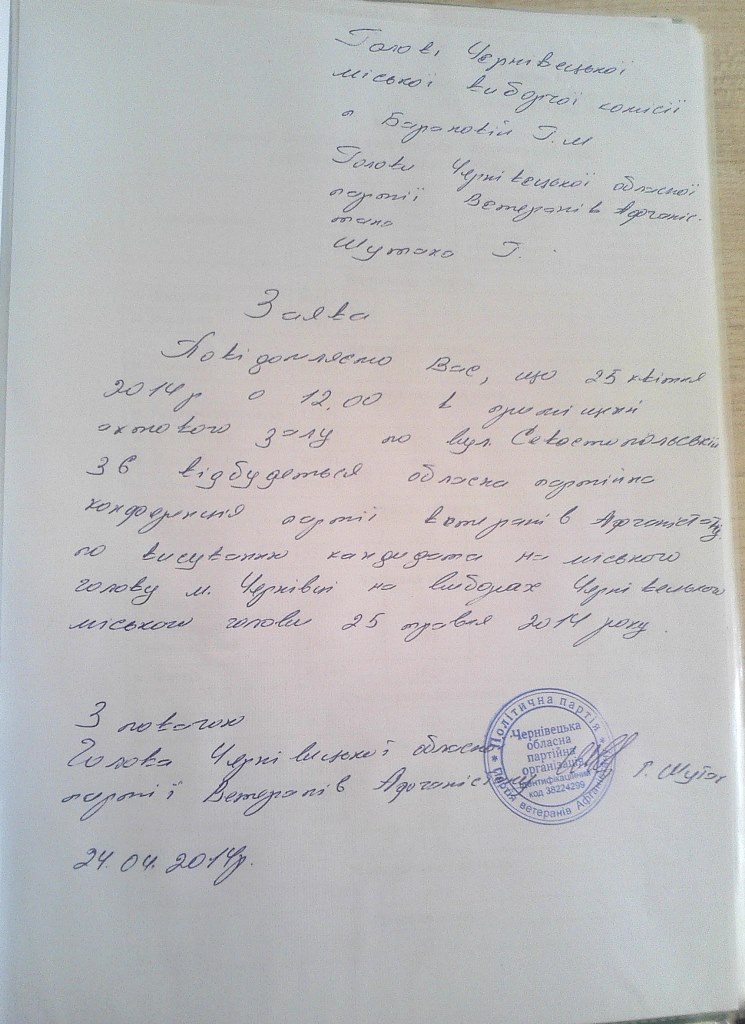 Голові Чернівецької
міської виборчої комісії
п Барановій Г.М
Голови Чернівецької обласної
партії Ветеранів Афганіс-
тана
Шутака Г.
Заява
Повідомляємо Вас, що 25 квітня
2014р о 12.00 в приміщені
актового залу по вул. Севастопольській
36 відбудеться обласна партійна
конференція партії ветеранів Афганістану
по висуванню кандидата на міського
голову м. Чернівці на виборах Чернівецького
міського голови 25 травня 2014 року.
З повагою
Голова Чернівицької обласної
партії Ветеранів Афганістану Г. Шутак
24.04.2014р.
* Політична партія *
Партія ветеранів Афганістану
Чернівецька
обласна
партійна
організація
Ідентифікаційний
код 38224299